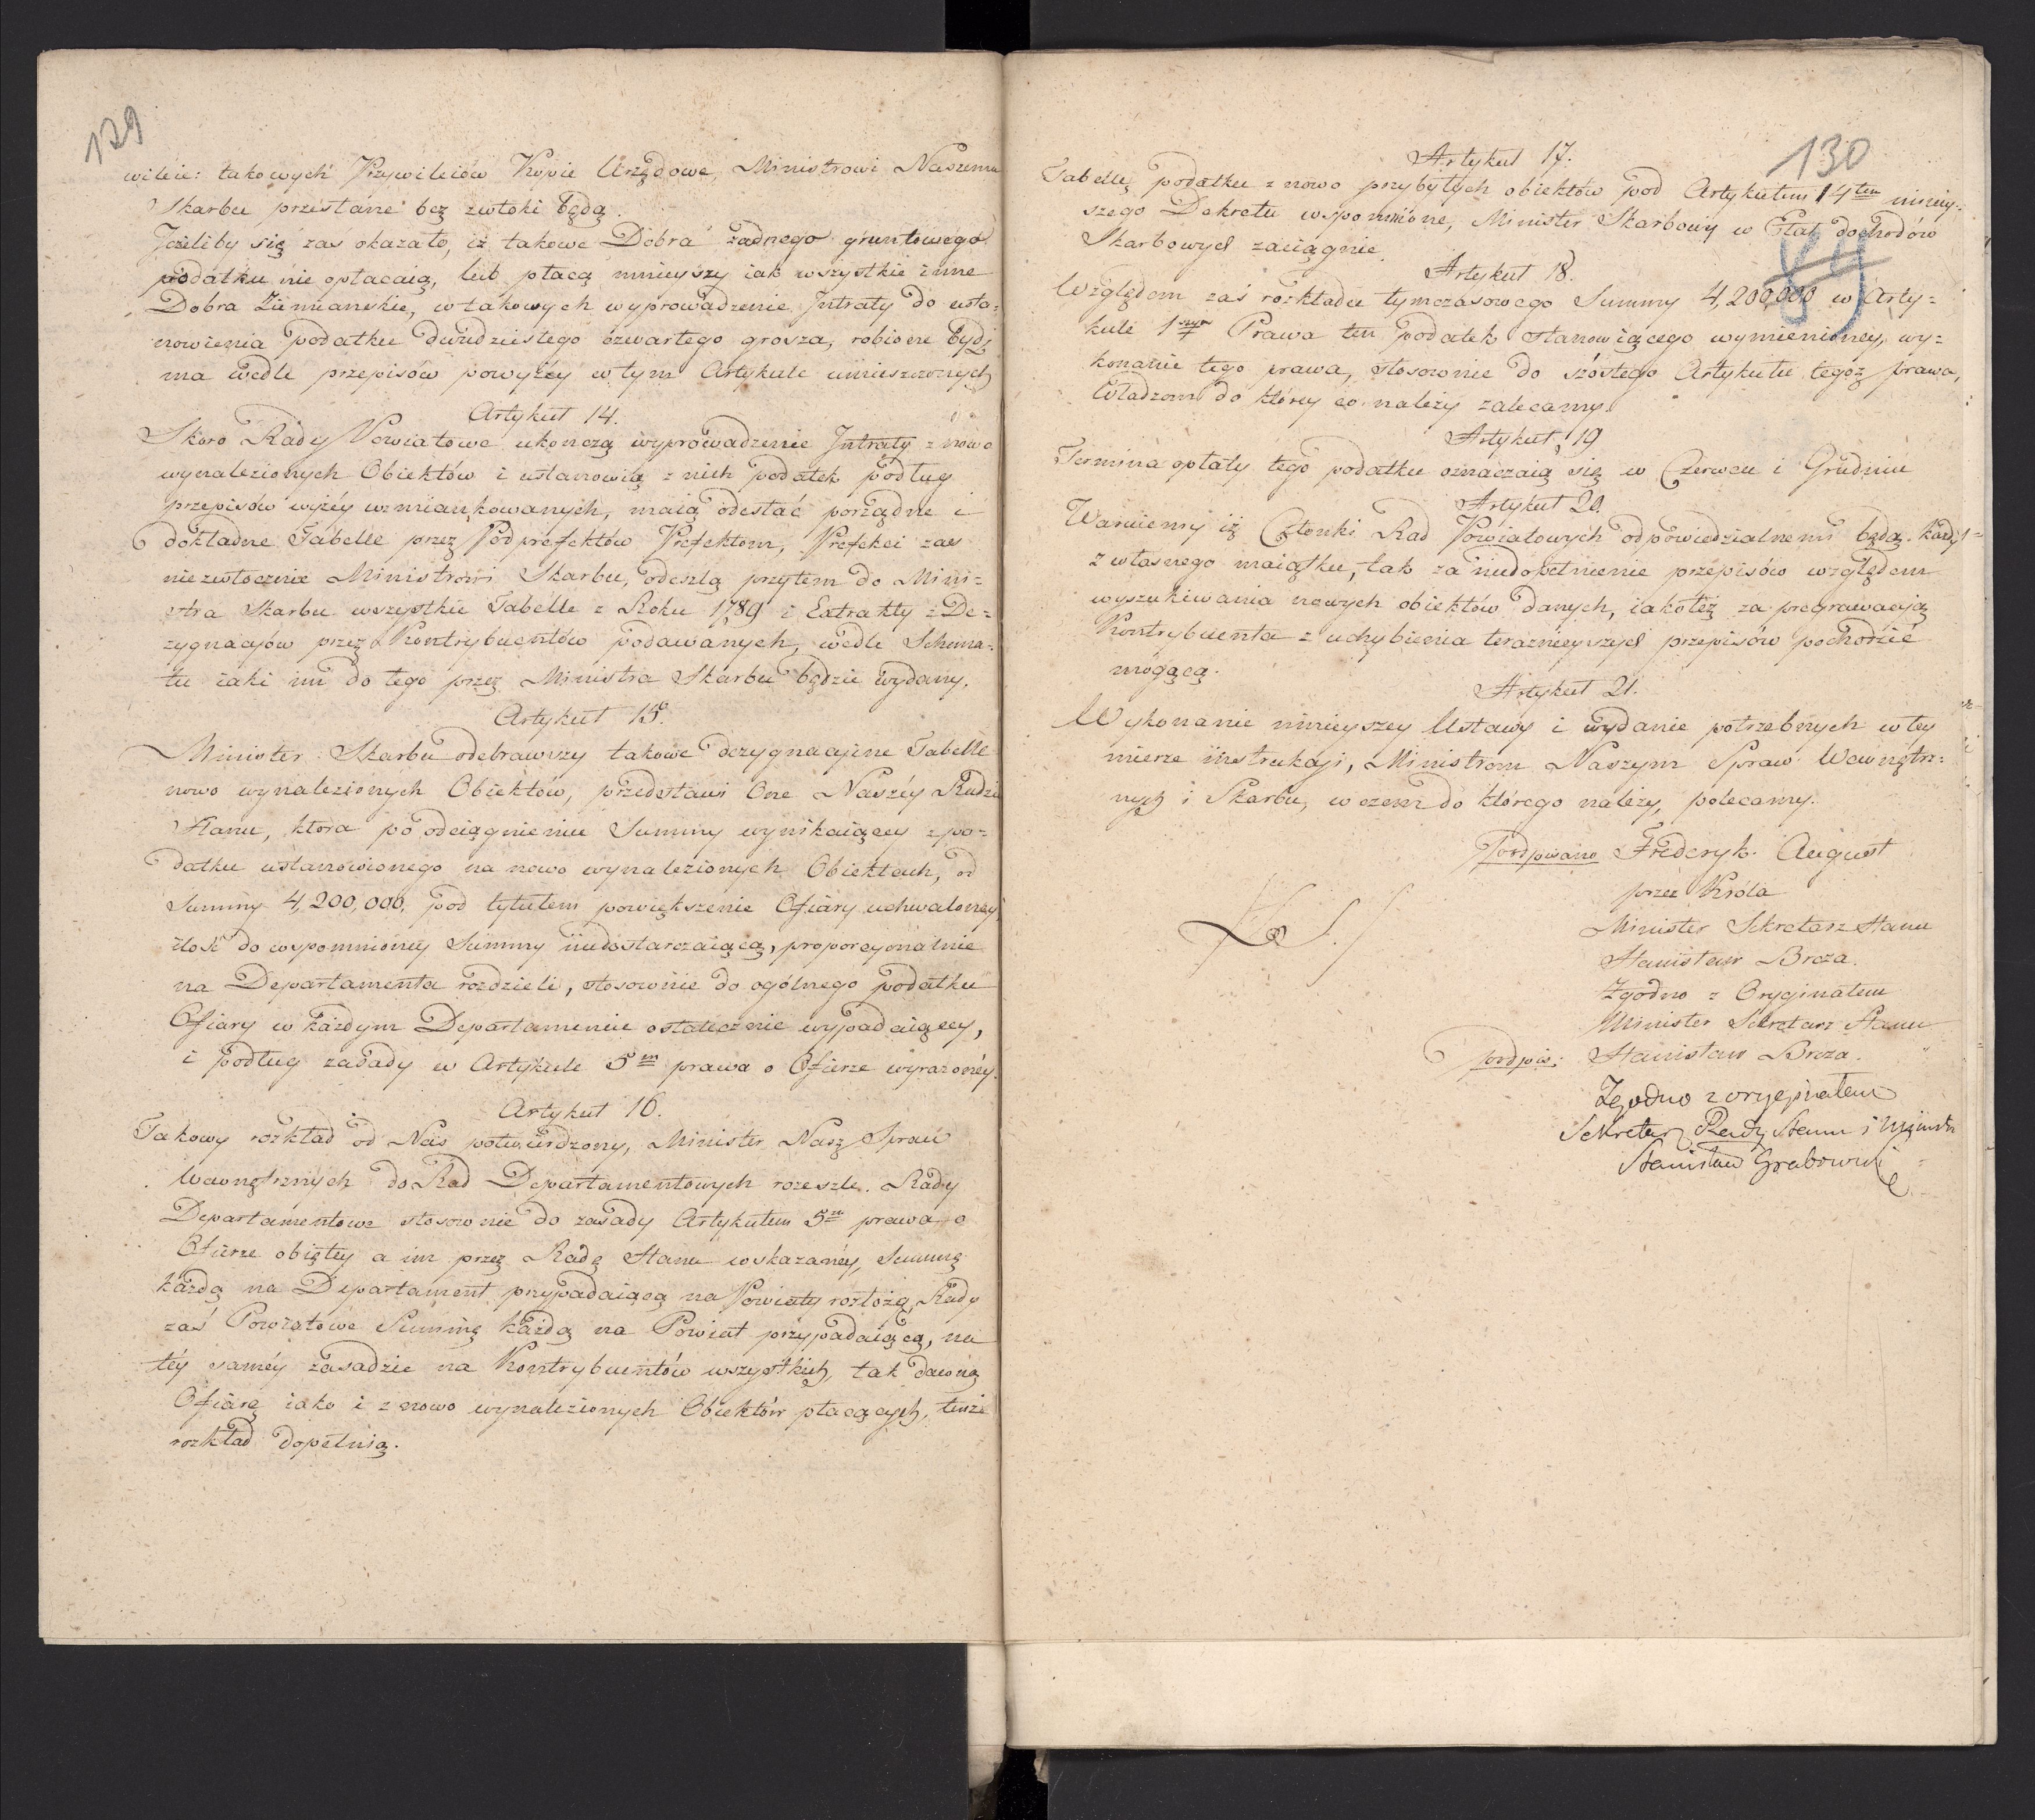 129
wileie: takowych Przywileiów Kopie Urzędowe, Ministrowi Naszemu
Skarbu przesłane bez zwłoki będą.
Jeżeliby się zaś okazało, iż takowe Dobra żadnego gruntowego
podatku nie opłacaią, lub płacą mnieyszy iak wszystkie inne
Dobra Ziemianskie, w takowych wyprowadzenie Jntraty do usta=
nowienia podatku dwudziestego czwartego grosza, robione bydź
ma wedle przepisów powyżey w tym Artykule umieszczonych
Artykuł 14.
Skoro Rady Powiatowe ukonczą wyprowadzenie Jntraty z nowo
wynalezionych Obiektów i ustanowią z nich podatek podług
przepisów wyżéy wzmiankowanych, maią odesłać porządne i
dokładne Tabelle przez Podprefektów Prefektom, Prefekci zaś
niezwłocznie Ministrowi Skarbu, odeszlą przytem do Mini=
stra Skarbu wszystkie Tabelle z Roku 1789 i Extrakty z De=
zygnacyów przez Kontrybuentów podawanych, wedle Schema=
tu iaki im do tego przez Ministra Skarbu będzie wydany.
Artykuł 15.
Minister Skarbu odebrawszy takowe dezygnacyine Tabelle
nowo wynalezionych Obiektów, przedstawi One Naszéy Radzie
Stanu, która po odciągnieniu Summy wynikaiącey z po=
datku ustanowionego na nowo wynalezionych Obiektach, od
Summy 4,200,000, pod tytułem powiększenie Ofiary uchwaloney,
ilość do wspomnioney Summy niedostarczaiącą, proporcyonalnie
na Departamenta rozdzieli, stosownie do ogólnego podatku
Ofiary w każdym Departamencie ostatecznie wypadaiącey,
i podług zasady w Artykule 5m prawa o Ofierze wyrażonéy.
Artykuł 16.
Takowy rozkład od Nas potwierdzony, Minister Nasz Spraw
Wewnętrznych do Rad Departamentowych rozeszle. Rady
Departamentowe stosownie do zasady Artykułem 5m prawa o
Ofierze obiętey a im przez Radę Stanu wskazanéy, Summę
każdą na Departament przypadaiącą na Powiaty rozłożą, Rady
zaś Powiatowe Summę każdą na Powiat przypadaiącą, na
téy saméy zasadzie na Kontrybuentów wszystkich, tak dawną
Ofiarę iako i z nowo wynalezionych Obiektów płacących, tenże
rozkład dopełnią.
130
89
Artykuł 17.
Tabellę podatku z nowo przybyłych obiektów pod Artykułem 14tem niniey=
szego Dekretu wspomnione, Minister Skarbowy w Etat dochodów
Skarbowych zaciągnie.
Artykuł 18.
Względem zaś rozkładu tymczasowego Summy 4,200,000 w Arty=
kule 1szym Prawa ten podatek stanowiącego wymienioney, wy=
konanie tego prawa, stosownie do szóstego Artykułu tegoż prawa,
Władzom do których co należy zalecamy.
Artykuł 19
Termina opłaty tego podatku oznaczaią się w Czerwcu i Grudniu
Artykuł 20.
Waruiemy iż Członki Rad Powiatowych odpowiedzialnemi będą każdy
z własnego maiątku, tak za niedopełnienie przepisów względem
wyszukiwania nowych obiektów danych, iakoteż za pregrawacyią
Kontrybuenta z uchybienia teraznieyszych przepisów pochodzić
mogącą.
Artykuł 21.
Wykonanie ninieyszey Ustawy i wydanie potrzebnych w tey
mierze instrukcyi, Ministrom Naszym Spraw Wewnętrz=
nych i Skarbu, w czem do którego należy, polecamy.
Podpisano Fryderyk August
przez Króla
Minister Sekretarz Stanu
Stanisław Breza.
L. S.
Zgodno z Oryginałem
Minister Sekretarz Stanu
podpis: Stanisław Breza.
Zgodno z oryginałem
Sekretarz Rady Stanu i Ministr
Stanisław Grabowski